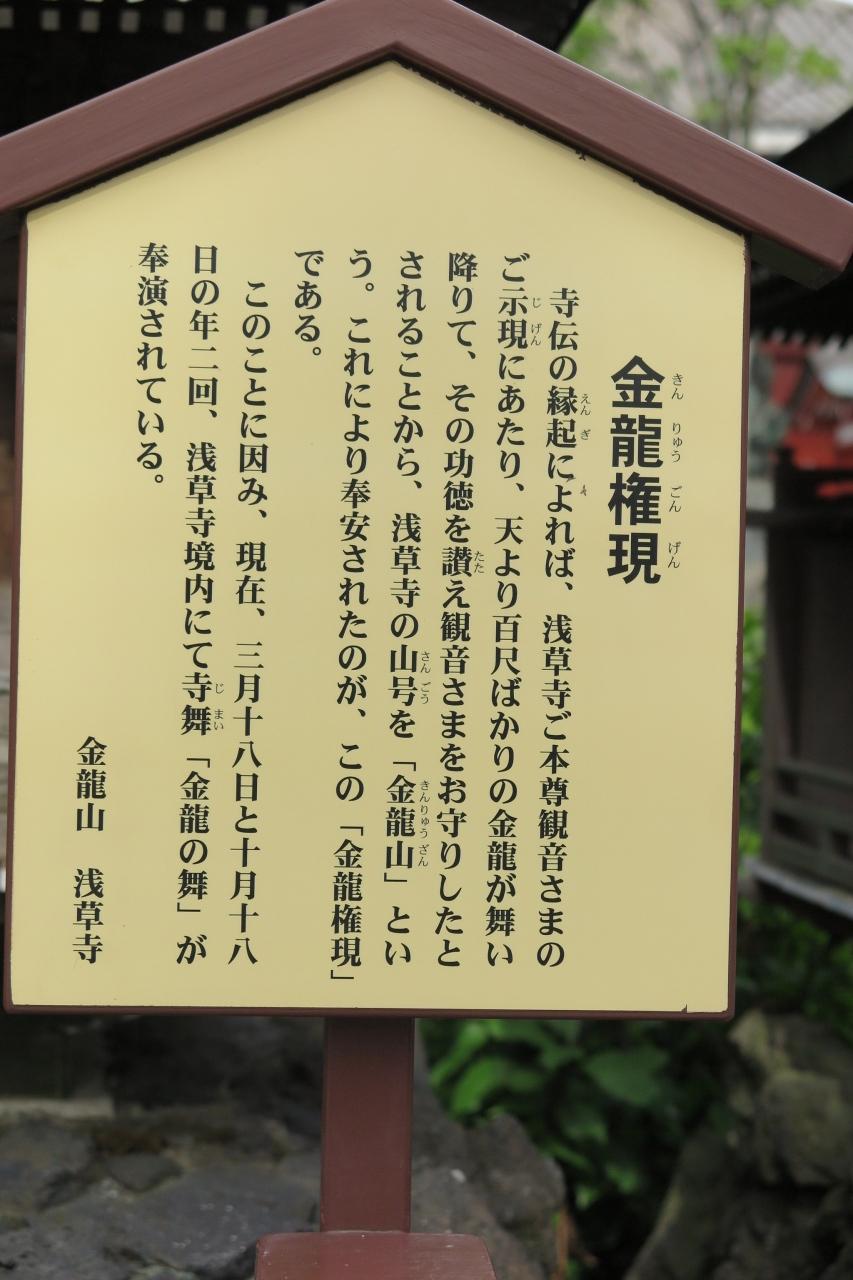 金龍権現
きん りゅう ごん げん
寺伝の縁起によれば、浅草寺ご本尊観音さまの
えん ぎ
ご示現にあたり、天より百尺ばかりの金龍が舞い
じ げん
降りて、その功徳を讃え観音さまをお守りしたと
たた
されることから、浅草寺の山号を「金龍山」とい
さん ごう きんりゅう ざん
う。これにより奉安されたのが、この「金龍権現」
である。
このことに因み、現在、三月十八日と十月十八
日の年二回、浅草寺境内にて寺舞「金龍の舞」が
じ まい
奉演されている。
金龍山 浅草寺